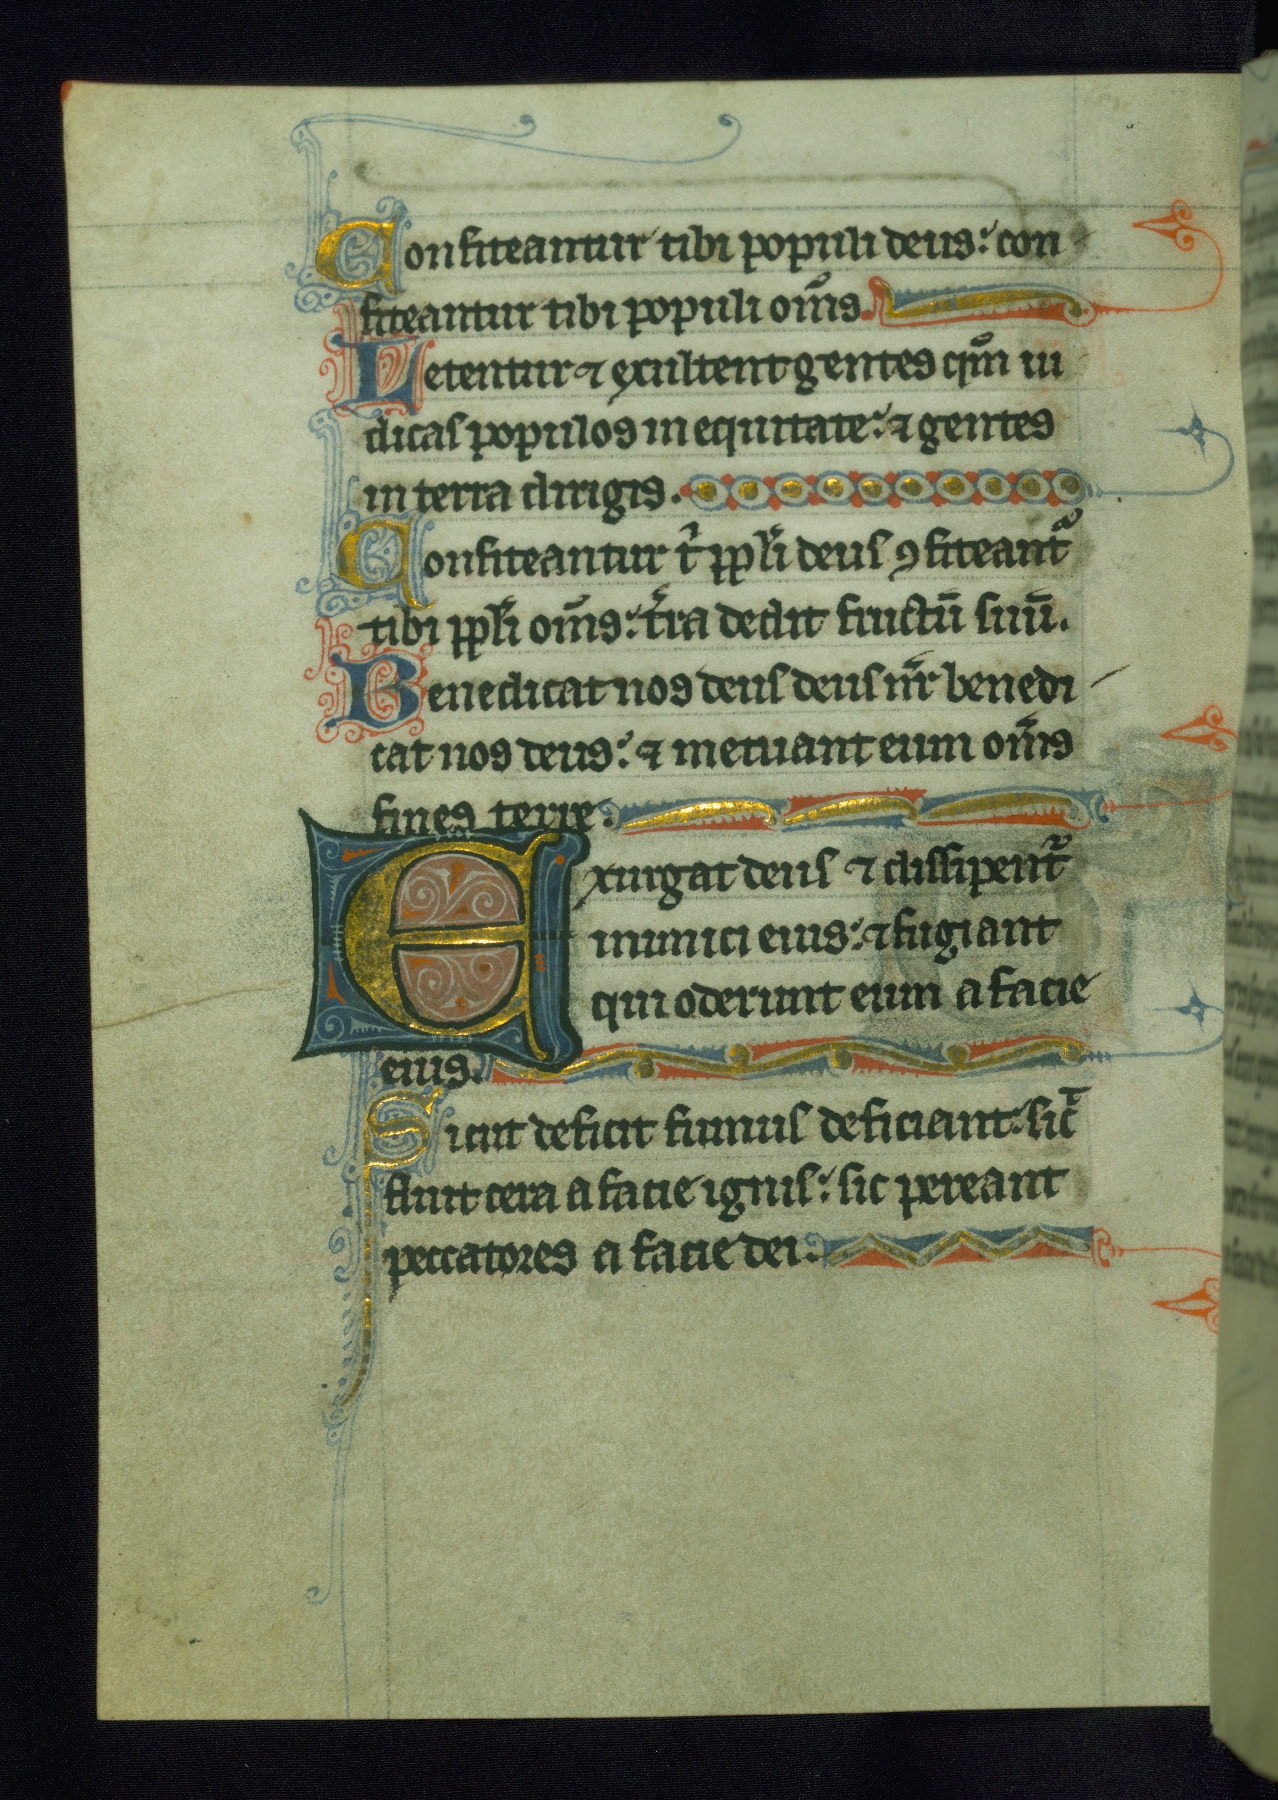 Confiteantur tibi populi deus: con
fiteantur tibi populi om̅s.
Letentur ⁊ exultent gentes qm̅ iu
dicas populos in equitate: ⁊ gentes
in terra dirigis.
Confiteantur t̄ ppl̄i deus ꝯfiteant᷑
tibi ppl̄i om̅s: t̄ra dedit fructū suū.
Benedicat nos deus deus nr̄ benedi
cat nos deus: ⁊ metuant eum om̅s
fines terre:
Exurgat deus ⁊ dissipent᷑
inimici eius: ⁊ fugiant
qui oderunt eum a facie
eius.
Sicut deficit fumus deficiant: sic̄
fluit cera a facie ignis: sic pereant
peccatores a facie dei: